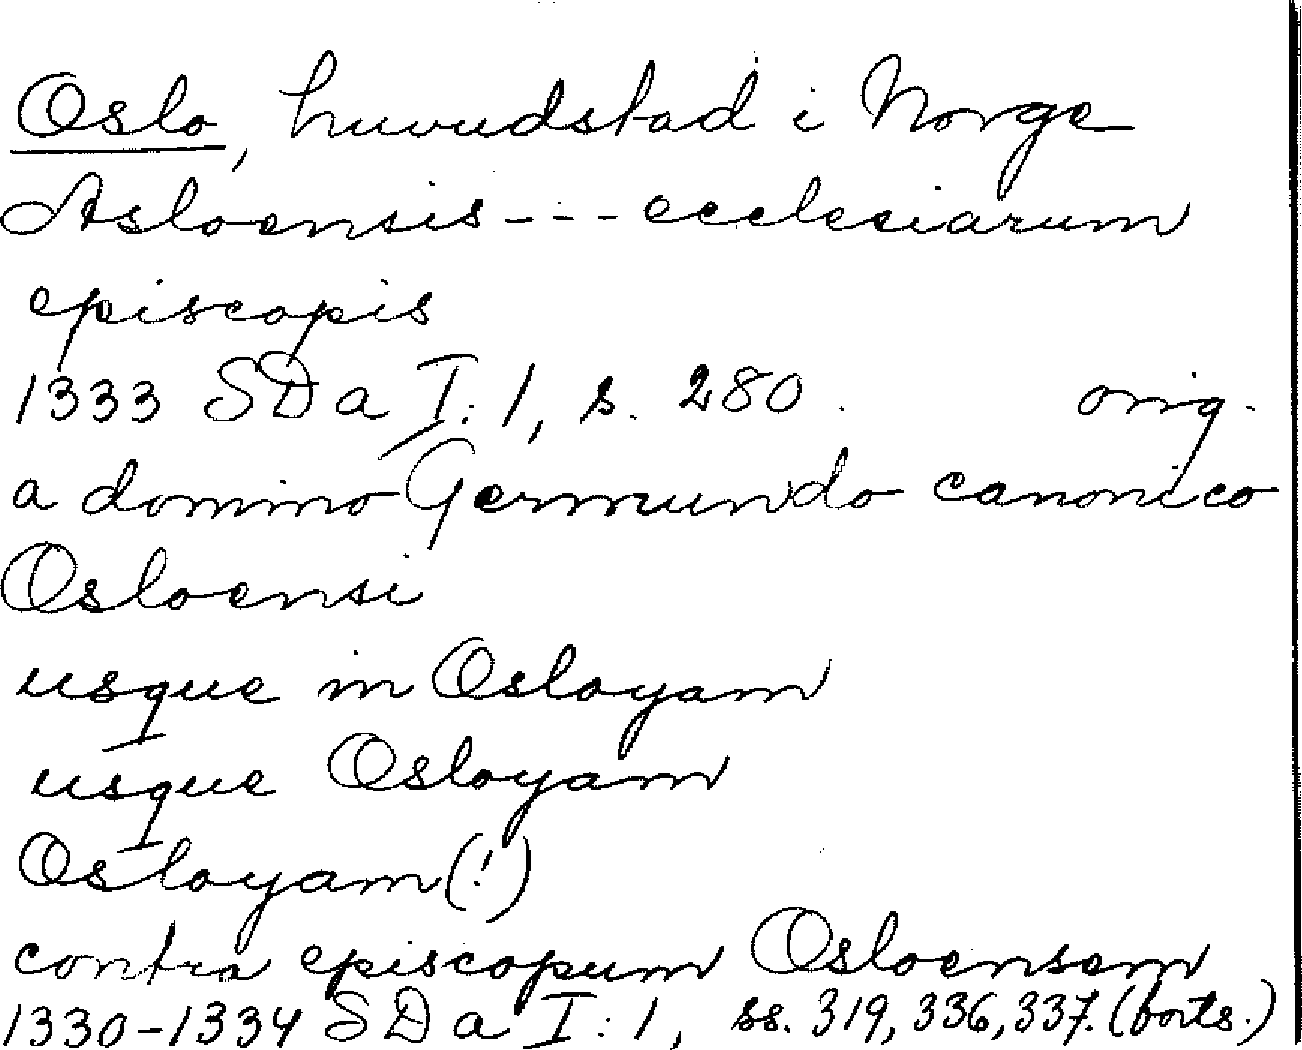 Oslo, huvudstad i Norge
Asloensis --- ecclesiarum
episcopis
1333 SD a I:1, s. 280. orig.
a domino Germundo canonico
Osloensi
usque in Osloyam
usque Osloyam
Osloyam (!)
contra episcopum Osloensem
1330-1334 SD a I:1, ss. 319, 336, 337. (forts.)